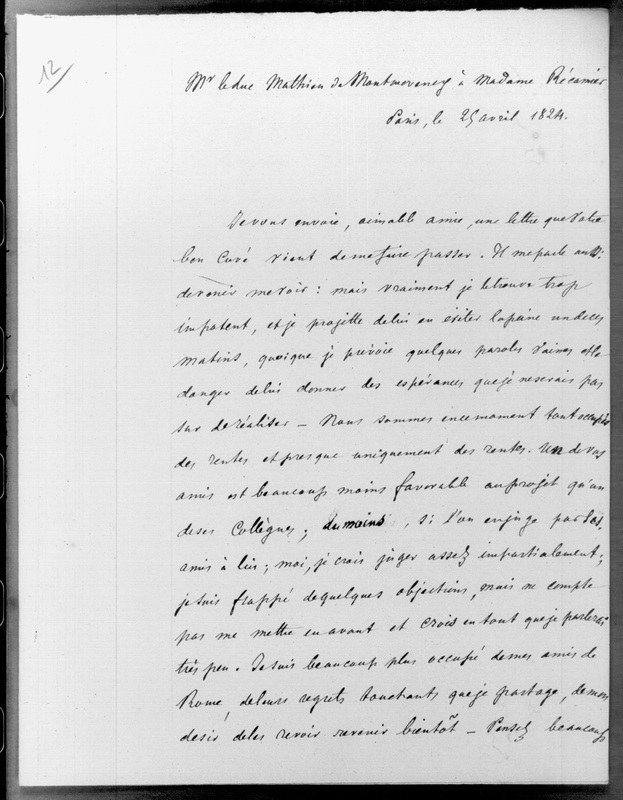 12/
Mr le duc Mathieu de Montmorency à Madame Récamier
Paris, le 25 avril 1824.
Je vous envoie, aimable amie, une lettre que votre
bon curé vient de me faire passer. Il me parle aussi
de venir me voir : mais vraiment je le trouve trop
impotent, et je projette de lui en éviter la peine un de ces
matins, quoique je prévoie quelques paroles vaines et le
danger de lui donner des espérances que je ne serais pas
sur de réaliser — Nous sommes en ce moment tout occupés
des rentes et presque uniquement des rentes. Un de vos
amis est beaucoup moins favorable au projet qu'un
de ses collègues ; du moins, si l'on en juge par les
amis à lui ; moi, je crois juger assez impartialement ;
je suis frappé de quelques objections, mais ne compte
pas me mettre en avant et crois en tout que je parlerai
très peu. Je suis beaucoup plus occupé de mes amis de
Rome, de leurs regrets touchants que je partage, de mon
désir de les revoir revenir bientôt — Pensez beaucoup